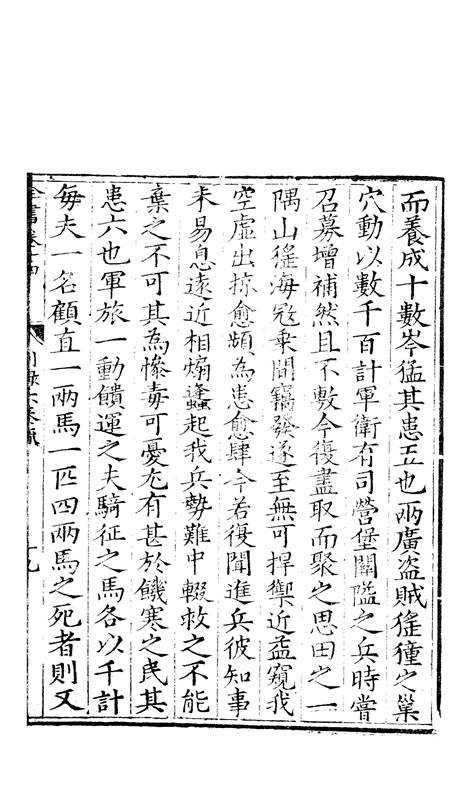 而養成十數岑猛其患五也兩廣盜賊猺獞之巢
穴動以數千百計軍衛有司營堡關隘之兵時嘗
召募增補然且不敷今復盡取而聚之思田之一
隅山猺海宼乘間竊發遂至無可捍禦近益窺我
空虛出掠愈頻為患愈肆今若復聞進兵彼知事
未易息遠近相煽蠭起我兵勢難中輟救之不能
棄之不可其為慘毒可憂尤有甚於饑寒之民其
患六也軍旅一動饋運之夫騎征之馬各以千計
每夫一名顧直一兩馬一匹四兩馬之死者則又